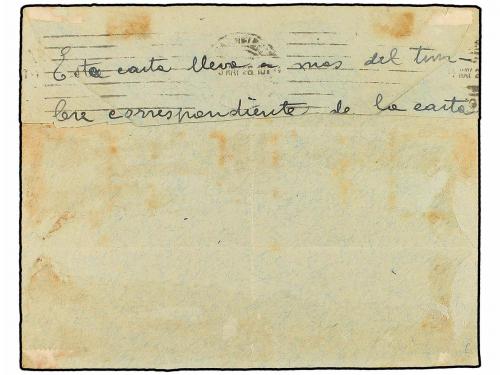 Esta carta lleva a mas del tim-
bre correspondiente de la carta